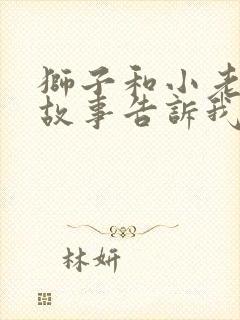 獅子和小老
故事告訴我
林妍